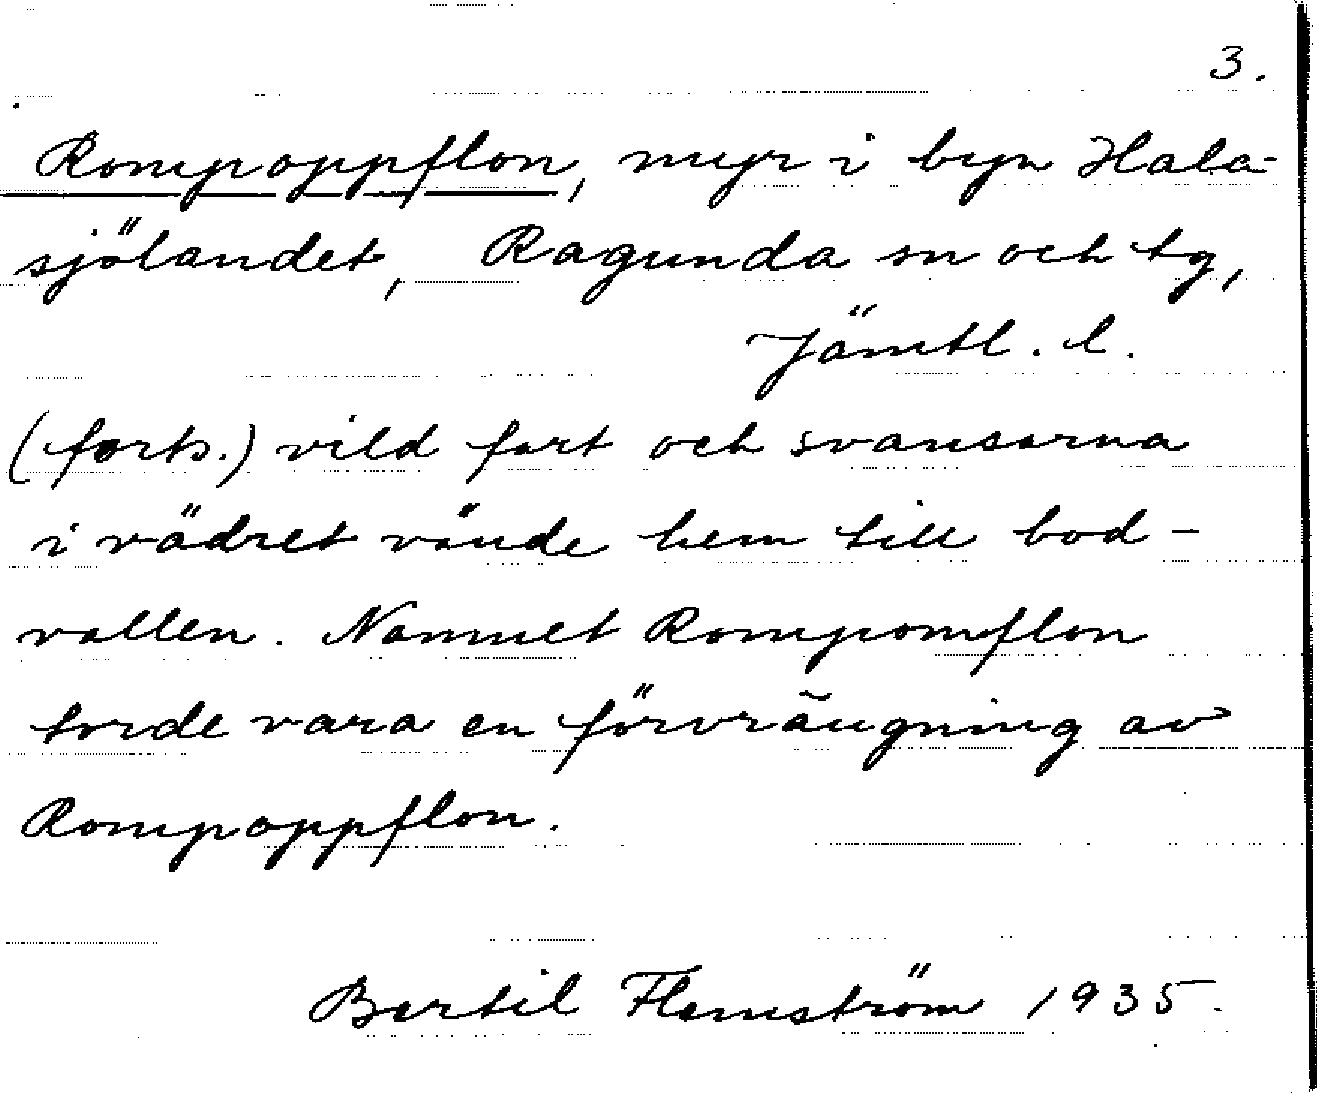 3.
Rompoppflon, myr i byn Hala-
sjölandet, Ragunda sn och tg,
Jämtl. l.
(forts.) vild fart och svansarna
i vädret vände hem till bod-
vallen. Namnet Rompomflon
torde vara en förvrängning av
Rompoppflon.
Bertil Flemström 1935.